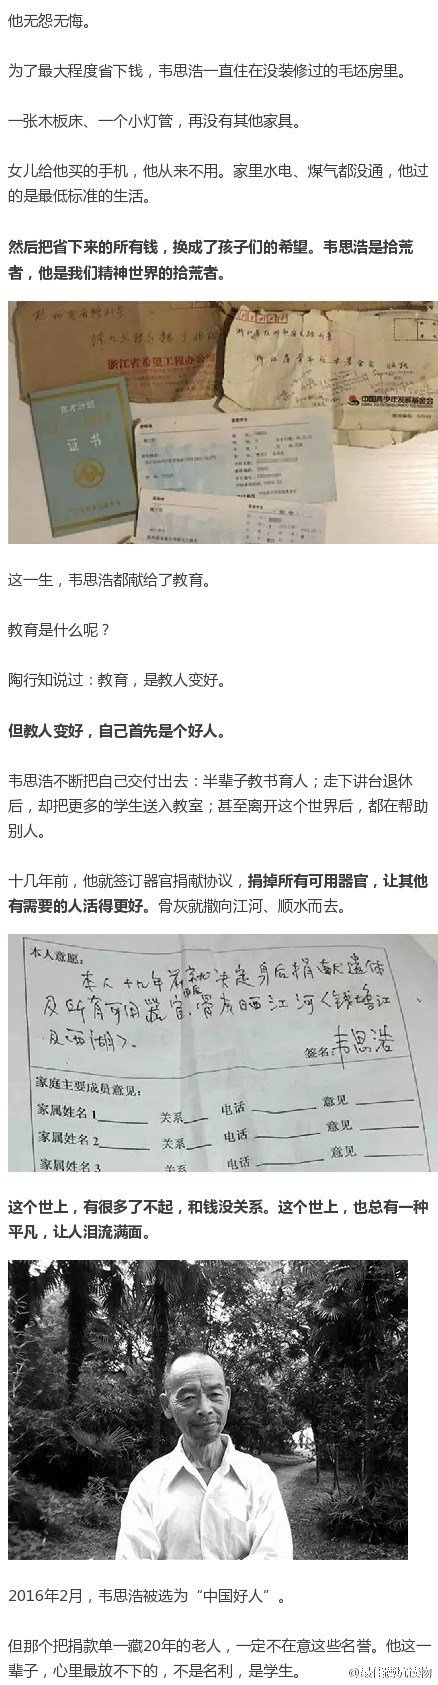 他无怨无悔。
为了最大程度省下钱，韦思浩一直住在没装修过的毛坯房里。
一张木板床、一个小灯管，再没有其他家具。
女儿给他买的手机，他从来不用。家里水电、煤气都没通，他过
的是最低标准的生活。
然后把省下来的所有钱，换成了孩子们的希望。韦思浩是拾荒
者，他是我们精神世界的拾荒者。
浙江省希望工程办公
中国青少年发展基金会
证书
这一生，韦思浩都献给了教育。
教育是什么呢？
陶行知说过：教育，是教人变好。
但教人变好，自己首先是个好人。
韦思浩不断把自己交付出去：半辈子教书育人；走下讲台退休
后，却把更多的学生送入教室；甚至离开这个世界后，都在帮助
别人。
十几年前，他就签订器官捐献协议，捐掉所有可用器官，让其他
有需要的人活得更好。骨灰就撒向江河、顺水而去。
本人意愿：
决定身后捐献遗体
及所有可用器官
签名：韦思浩
家庭主要成员意见：
家属姓名1 关系 电话 意见
家属姓名2 关系 电话 意见
家属姓名3 关系 电话 意见
这个世上，有很多了不起，和钱没关系。这个世上，也总有一种
平凡，让人泪流满面。
2016年2月，韦思浩被选为“中国好人”。
但那个把捐款单一藏20年的老人，一定不在意这些名誉。他这一
辈子，心里最放不下的，不是名利，是学生。